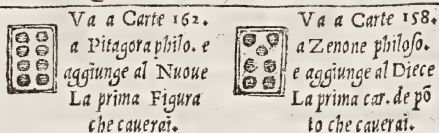 Va a Carte 162.
a Pitagora philo. e
aggiunge al Nuoue
La prima Figura
che cauerai.
Va a Carte 158.
a Zenone philoso.
e aggiunge al Diece
La prima car. de põ
to che cauerai.